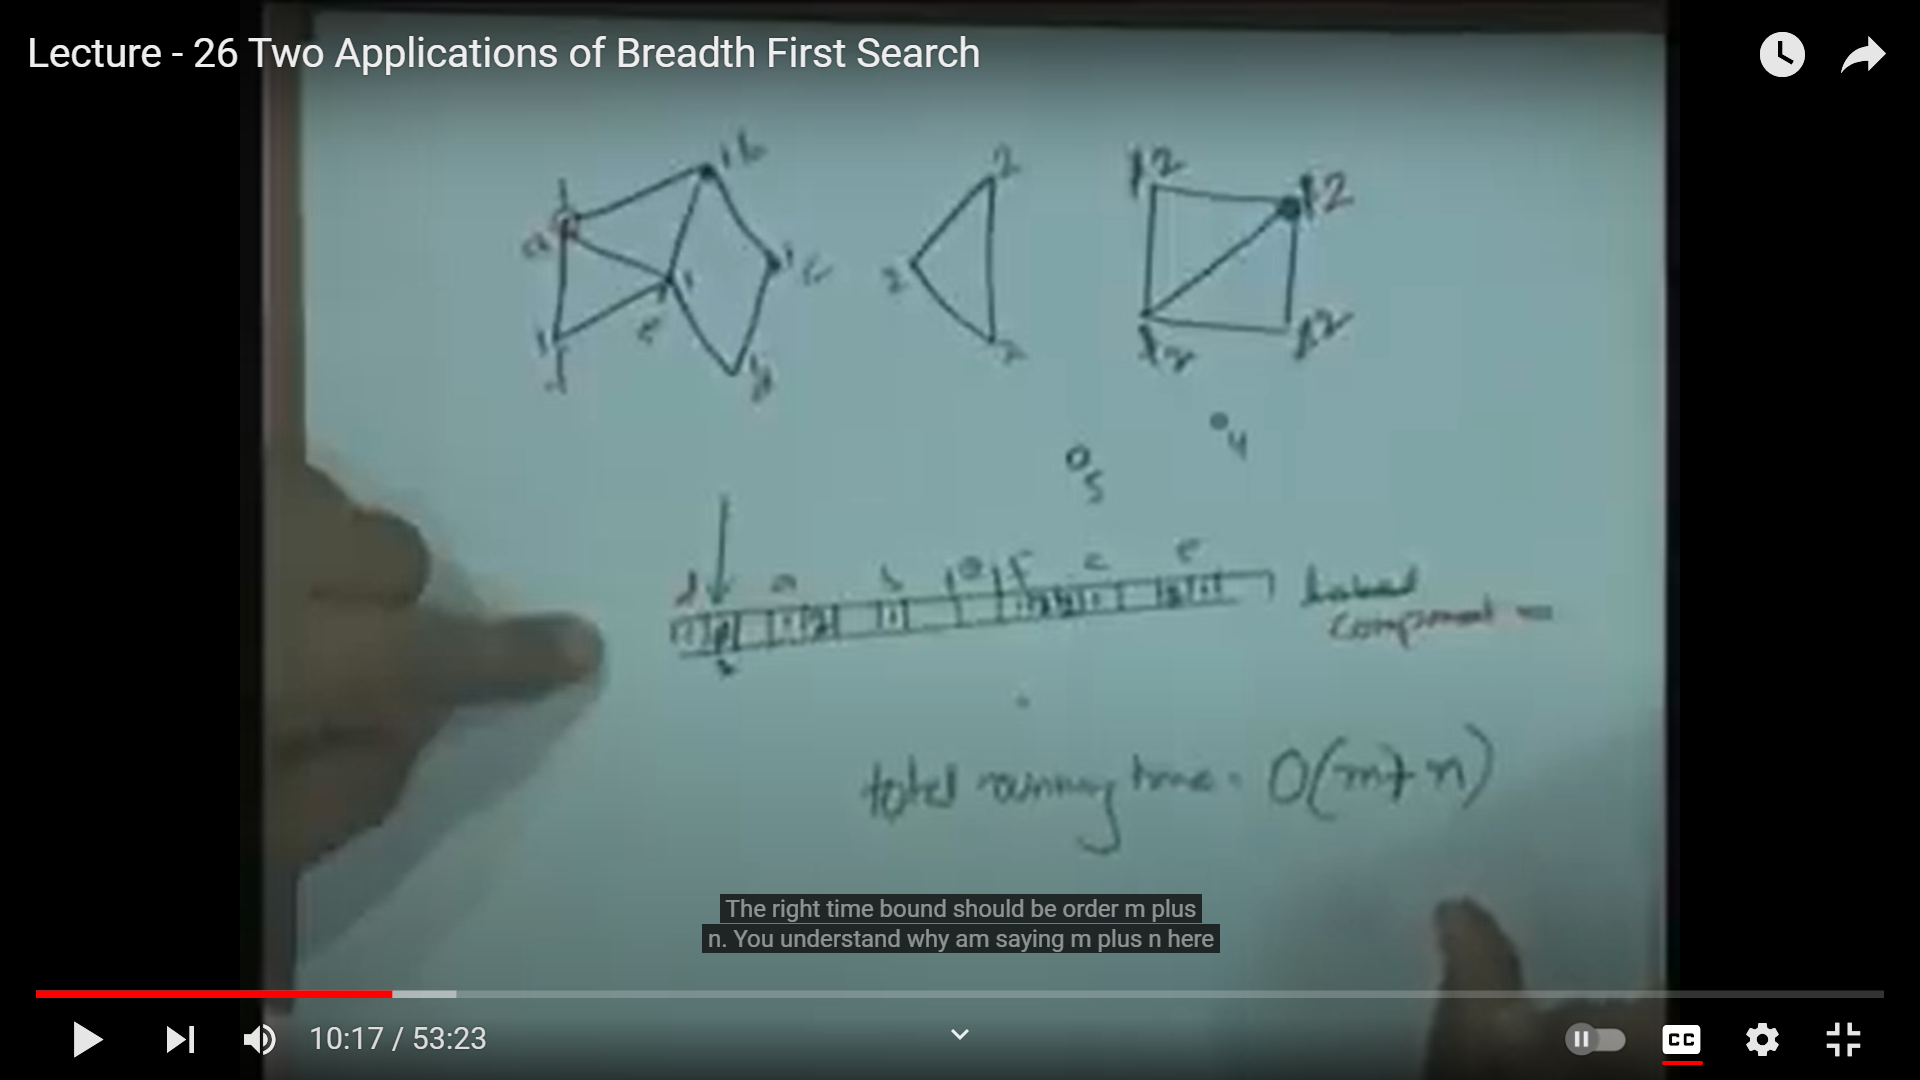 Lecture - 26 Two Applications of Breadth First Search
1 b
2
12
12
1
a
1
c
2
1
e
1
f
2
12
12
4
5
d a b f c e
Label
Component
total running time = O(m+n)
The right time bound should be order m plus
n. You understand why am saying m plus n here
10:17 / 53:23
CC